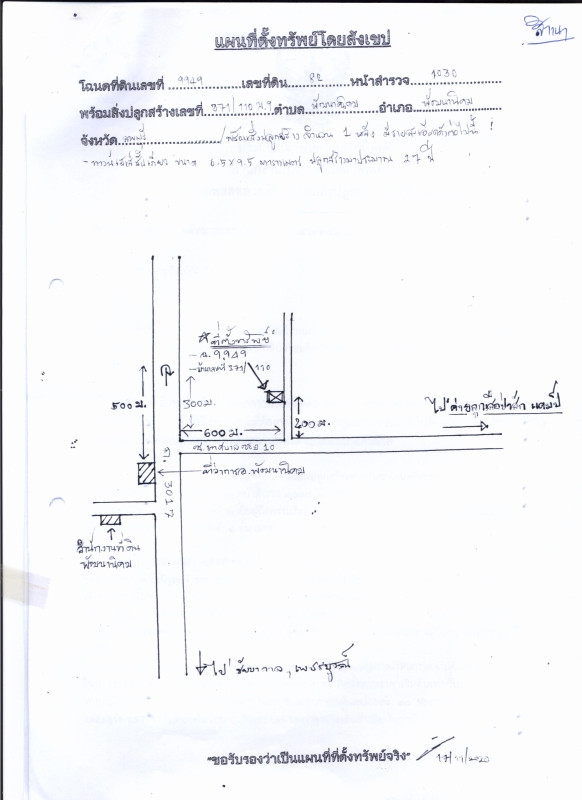 สำเนา
แผนที่ตั้งทรัพย์โดยสังเขป
โฉนดที่ดินเลขที่ 9949 เลขที่ดิน 82 หน้าสำรวจ 1030
พร้อมสิ่งปลูกสร้างเลขที่ 371/110 ม.9 ตำบล พัฒนานิคม อำเภอ พัฒนานิคม
จังหวัด ลพบุรี / พร้อมสิ่งปลูกสร้าง จำนวน 1 หลัง มีรายละเอียดดังต่อไปนี้
- ทาวน์เฮ้าส์ชั้นเดียว ขนาด 6.5x9.5 ตารางเมตร ปลูกสร้างมาประมาณ 27 ปี
ที่ตั้งทรัพย์
- ฉ. 9949
- บ้านเลขที่ 371/110
500 ม.
300 ม.
600 ม.
200 ม.
ไป ค่ายลูกเสือป่าสัก แคมป์
ซ. เทศบาล ซอย 10
ถ. 3017
ที่ว่าการอ.พัฒนานิคม
สำนักงานที่ดิน
พัฒนานิคม
ไป ชัยบาดาล, เพชรบูรณ์
"ขอรับรองว่าเป็นแผนที่ที่ตั้งทรัพย์จริง"